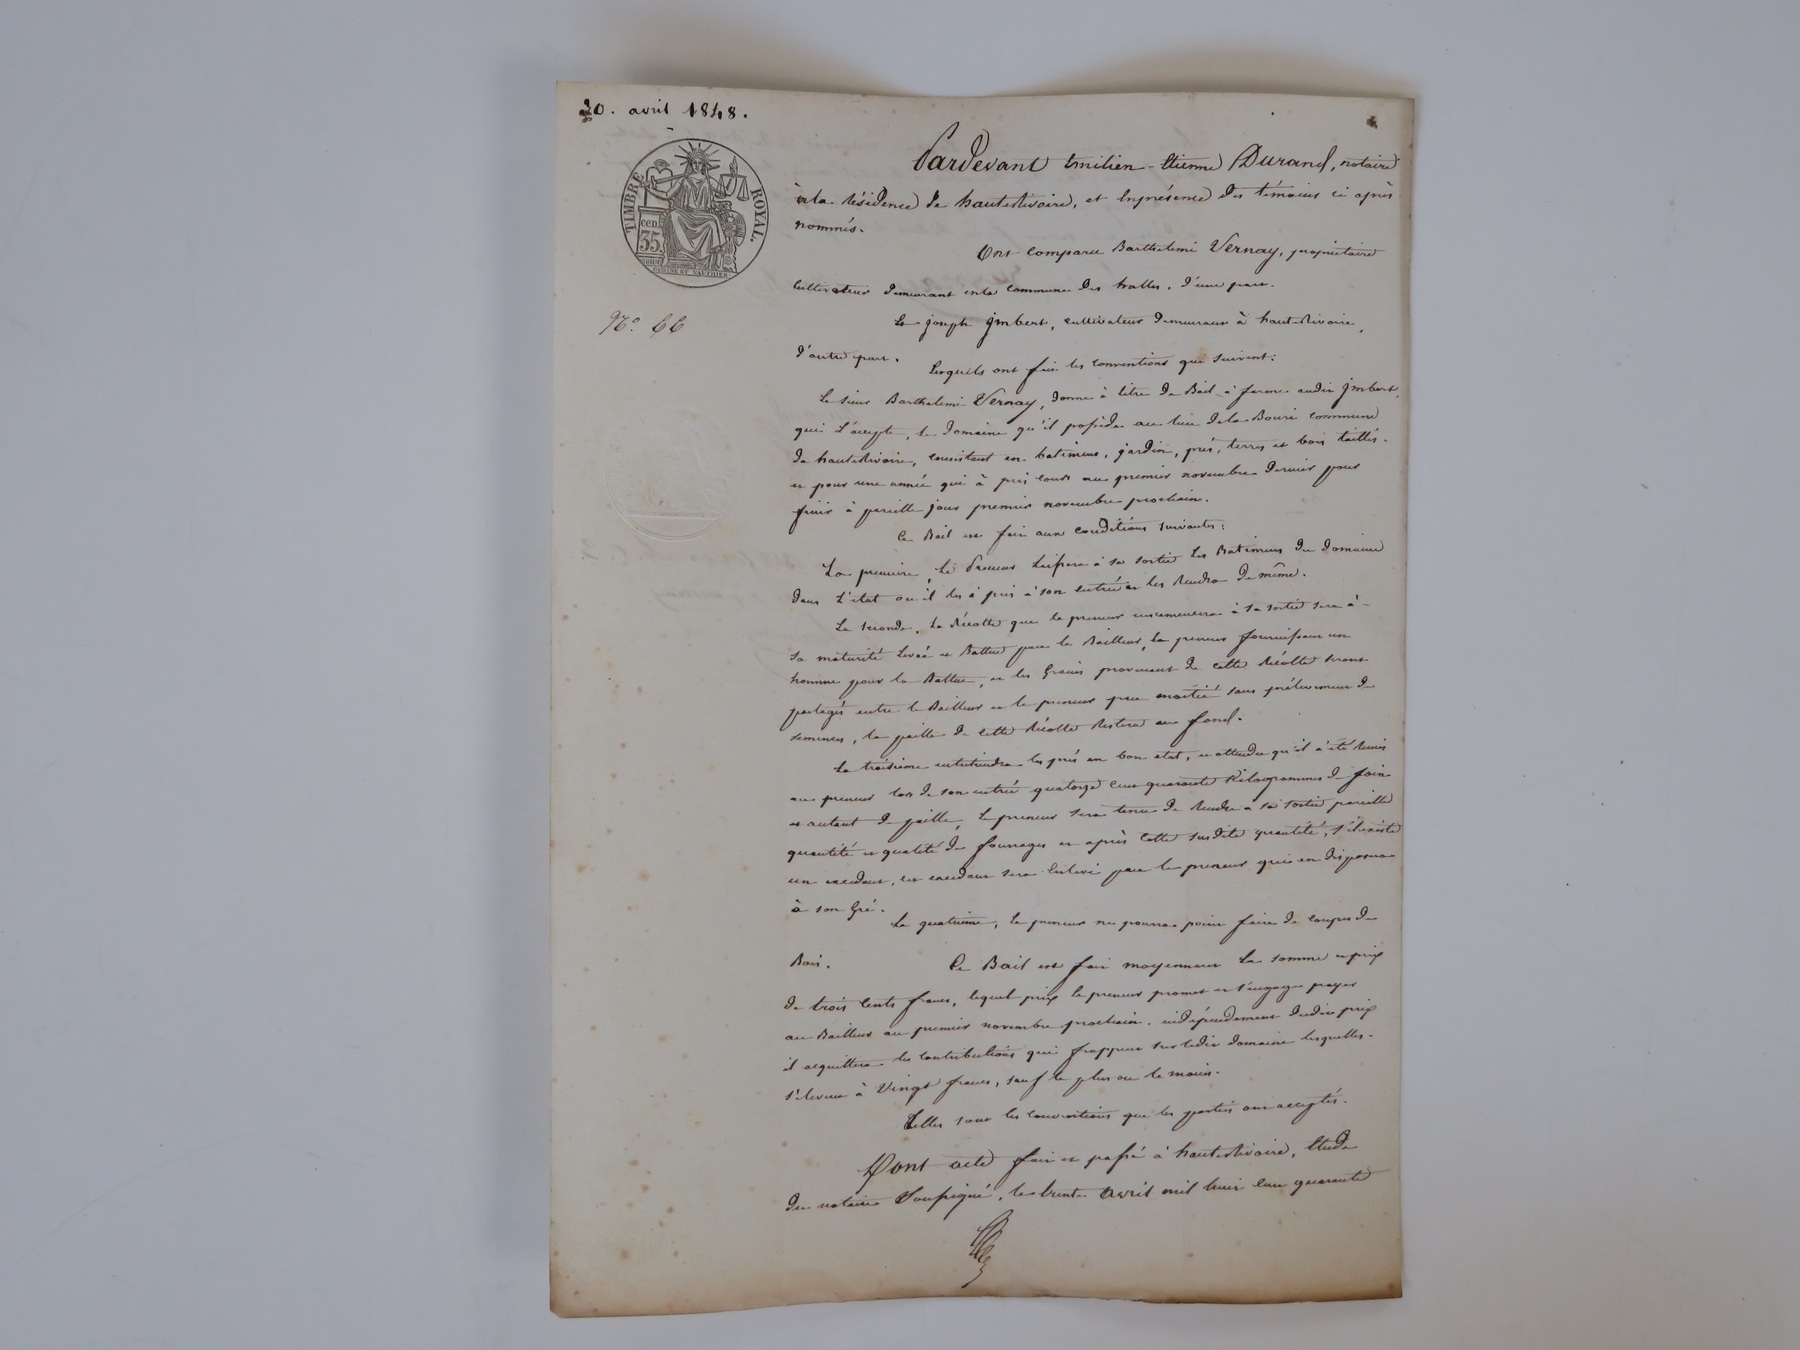 30. avril 1848.
TIMBRE ROYAL.
cen.
35.
N.º 66
Pardevant Emilien-Etienne Durand, notaire
à la Résidence de hauteRivoire, et En présence des témoins ci après
nommés.
Ont comparu Barthelemi Vernay, propriétaire
Cultivateur demeurant en la commune des halles, d'une part.
Et joseph jmbert, cultivateur demeurant à hauteRivoire,
d'autre part.
Lesquels ont fait les conventions qui suivent:
Le sieur Barthelemi Vernay, donne à titre de Bail à ferme audit jmbert,
qui L'accepte, le domaine qu'il possède au lieu de la Bouri commune
de hauteRivoire, consistant en batimens, jardin, prés, terres et bois taillis.
et pour une année qui à pris cours au premier novembre dernier pour
finir à pareille jour premier novembre prochain.
Ce Bail est fait aux conditions suivantes:
La première, le Preneur laissera à sa sortie Les Batimens du domaine
dans L'état où il les à pris à son entrée et les Rendra de même.
La seconde, La Récolte que le preneur ensemencera à sa sortie sera à
sa maturité Levée et Battue par le Bailleur, le preneur fournissant un
homme pour la Battue, et les Grains provenant de cette Récolte seront
partagés entre le Bailleur et le preneur par moitié sans prélèvement de
semences, la paille de cette Récolte Restera au fond.
La troisième entretiendra les prés en bon état, et attendu qu'il à été Remis
au preneur lors de son entrée quatorze cent quarante Kilogrammes de foin
et autant de paille, Le preneur sera tenu de Rendre à sa sortie pareille
quantité et qualité de fourrages et après cette susdite quantité, s'il existe
un excédant, cet excédant sera Enlevé par le preneur qui en disposera
à son Gré.
La quatrième, Le preneur ne pourra point faire de coupes de
Bois.
Ce Bail est fait moyennant La somme et prix
de trois Cents francs, lequel prix le preneur promet et s'engage payer
au Bailleur au premier novembre prochain. indépendamment dudit prix
il acquittera les Contributions qui frappent sur ledit domaine lesquelles
s'élèvent à Vingt francs, sauf le plus ou le moins.
Telles sont les Conventions que les parties ont acceptés.
Dont acte fait et passé à hauteRivoire, Etude
du notaire Soussigné, le trente avril mil huit cent quarante